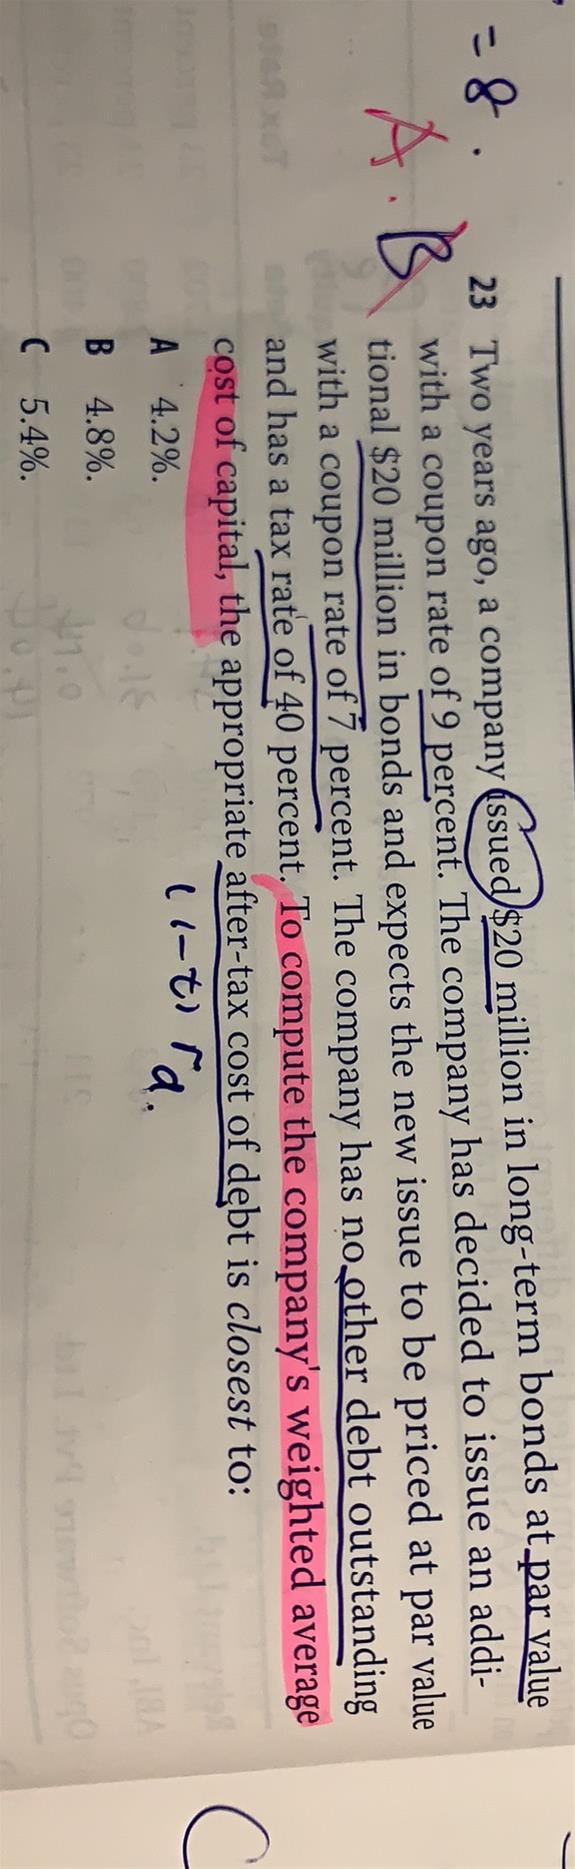 = 8.
A. B
23 Two years ago, a company issued $20 million in long-term bonds at par value
with a coupon rate of 9 percent. The company has decided to issue an addi-
tional $20 million in bonds and expects the new issue to be priced at par value
with a coupon rate of 7 percent. The company has no other debt outstanding
and has a tax rate of 40 percent. To compute the company's weighted average
cost of capital, the appropriate after-tax cost of debt is closest to:
(1-t) rd.
A 4.2%.
B 4.8%.
C 5.4%.